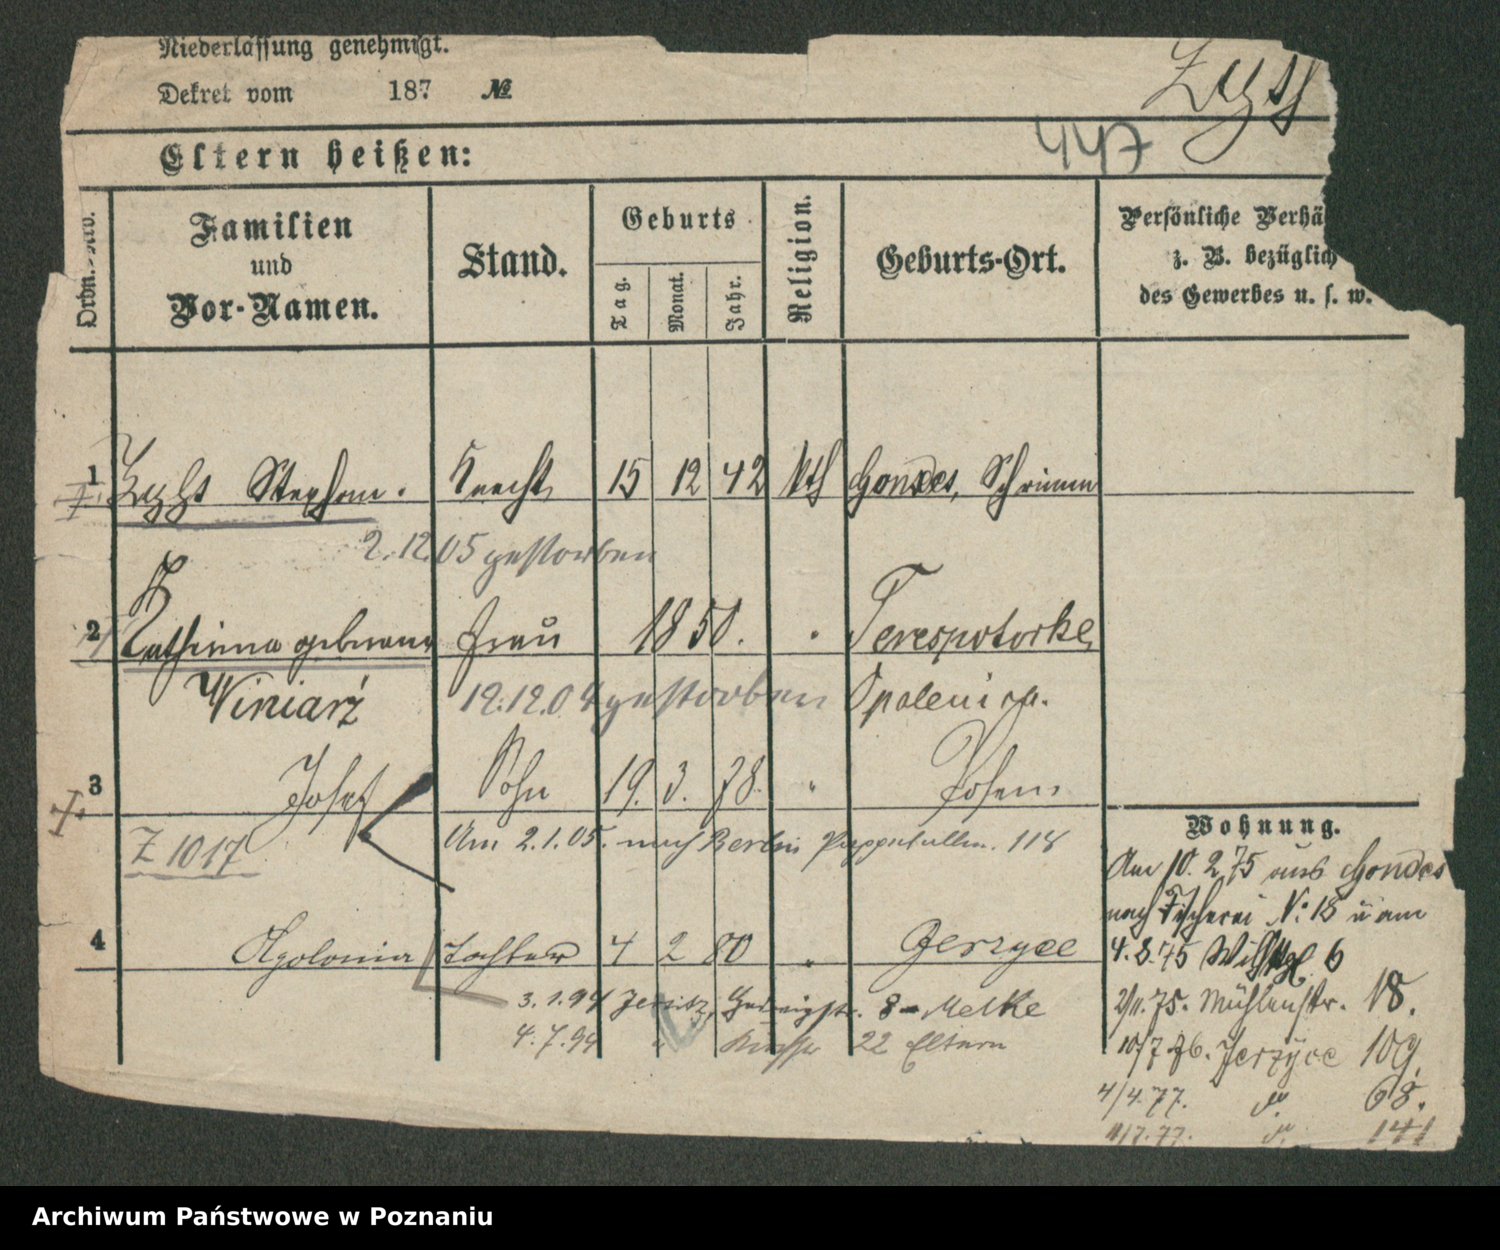 Niederlassung genehmigt.
Dekret vom 187 №
Zyß
447
Eltern heißen:
Ordn.-No.
Familien
und
Vor-Namen.
Stand.
Geburts
Tag.
Monat.
Jahr.
Religion.
Geburts-Ort.
Persönliche Verhä
z. B. bezüglich
des Gewerbes u. s. w.
1 Stephan. Knecht 15 12 42 kth Gondes, Schrimm
2.12.05 gestorben
2 Katharina geborene Frau 1850. " Terespotorke
Winiarz 12.12.04 gestorben Opalenica.
3 Josef Sohn 19. 3. 78. " Posen
Z 1017 Am 2.1.05. nach Berlin 118
4 Apolonia Tochter 4 2 80 " Jerzyce
3.1.94 Jersitz, Hedwigstr. 8 - Melke
4.7.94 " 22 Eltern
Wohnung.
Am 10. 2. 75 aus Gondes
nach Fischerei N: 18 u am
4.3.75 6
2/11. 75. Mühlenstr. 18.
10/7 76. Jerzyce 109.
4/4. 77. do 68.
11/7. 77. do 141
Archiwum Państwowe w Poznaniu